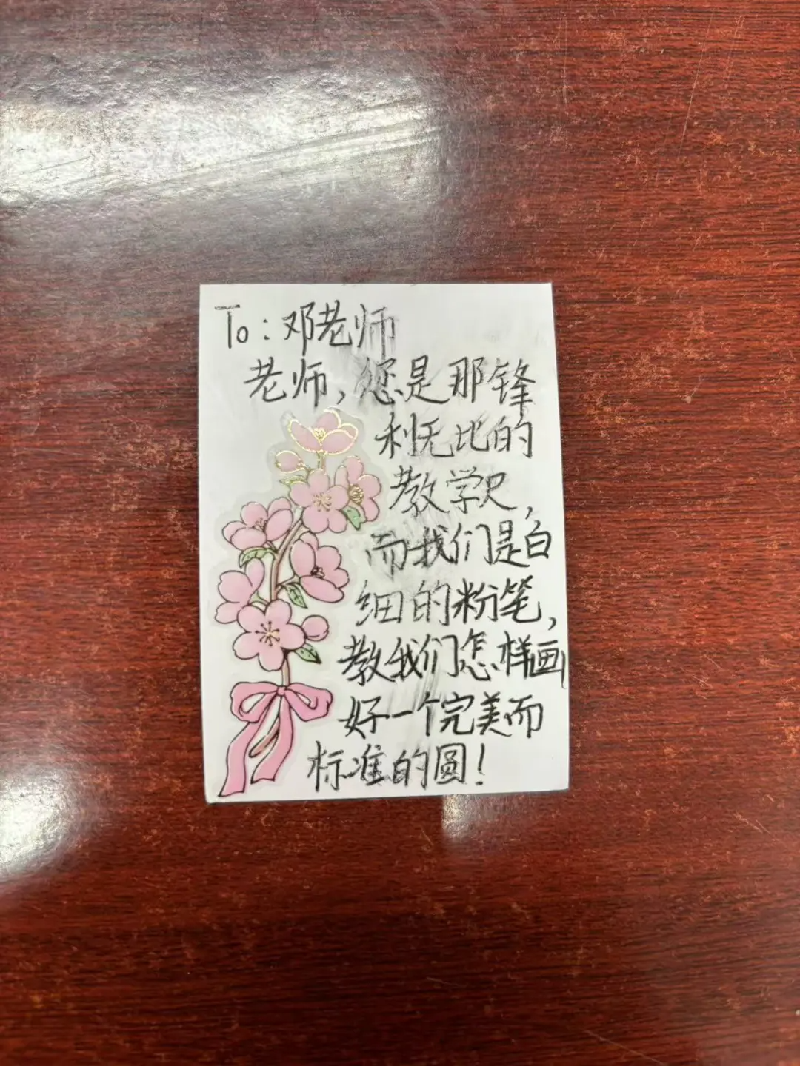 To:邓老师
老师,您是那锋
利无比的
教学尺,
而我们是白
细的粉笔,
教我们怎样画
好一个完美而
标准的圆!